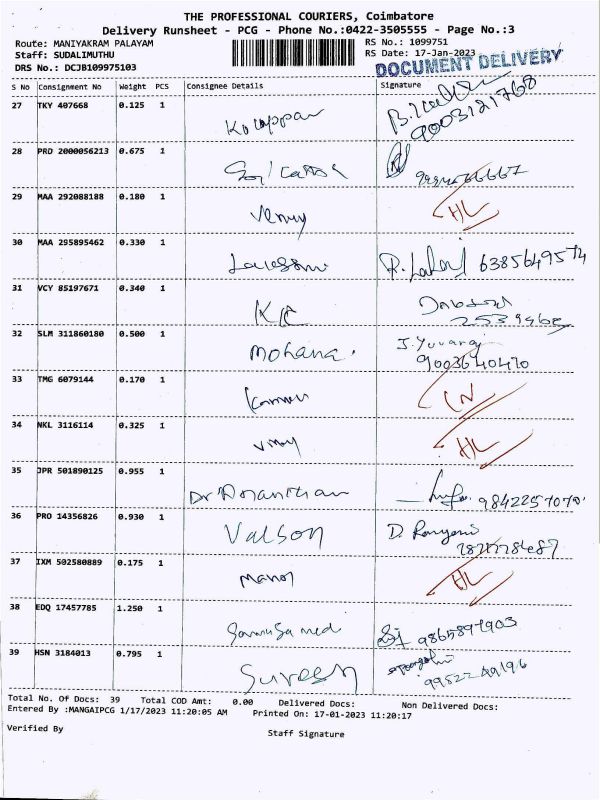 THE PROFESSIONAL COURIERS, Coimbatore
Delivery Runsheet - PCG - Phone No.:0422-3505555 - Page No.:3
Route: MANIYAKRAM PALAYAM
RS No.: 1099751
Staff: SUDALIMUTHU
RS Date: 17-Jan-2023
DRS No.: DCJB109975103
DOCUMENT DELIVERY
S No Consignment No Weight PCS Consignee Details Signature
27 TKY 407668 0.125 1 9003121768
28 PRO 2000056213 0.675 1
29 MAA 292088188 0.180 1 HL
30 MAA 295895462 0.330 1 6385649574
31 VCY 85197671 0.340 1 KK
32 SLM 311860180 0.500 1 Mohana. J. Yuvaraj 9003640470
33 TMG 6079144 0.170 1
34 NKL 3116114 0.325 1 HL
35 JPR 501890125 0.955 1 9842257070
36 PRO 14356826 0.930 1 Valson D.
37 IXM 502580889 0.175 1 Manoj HL
38 EDQ 17457785 1.250 1 9865897903
39 HSN 3184013 0.795 1 Suresh
Total No. Of Docs: 39 Total COD Amt: 0.00 Delivered Docs: Non Delivered Docs:
Entered By :MANGAIPCG 1/17/2023 11:20:05 AM Printed On: 17-01-2023 11:20:17
Verified By
Staff Signature